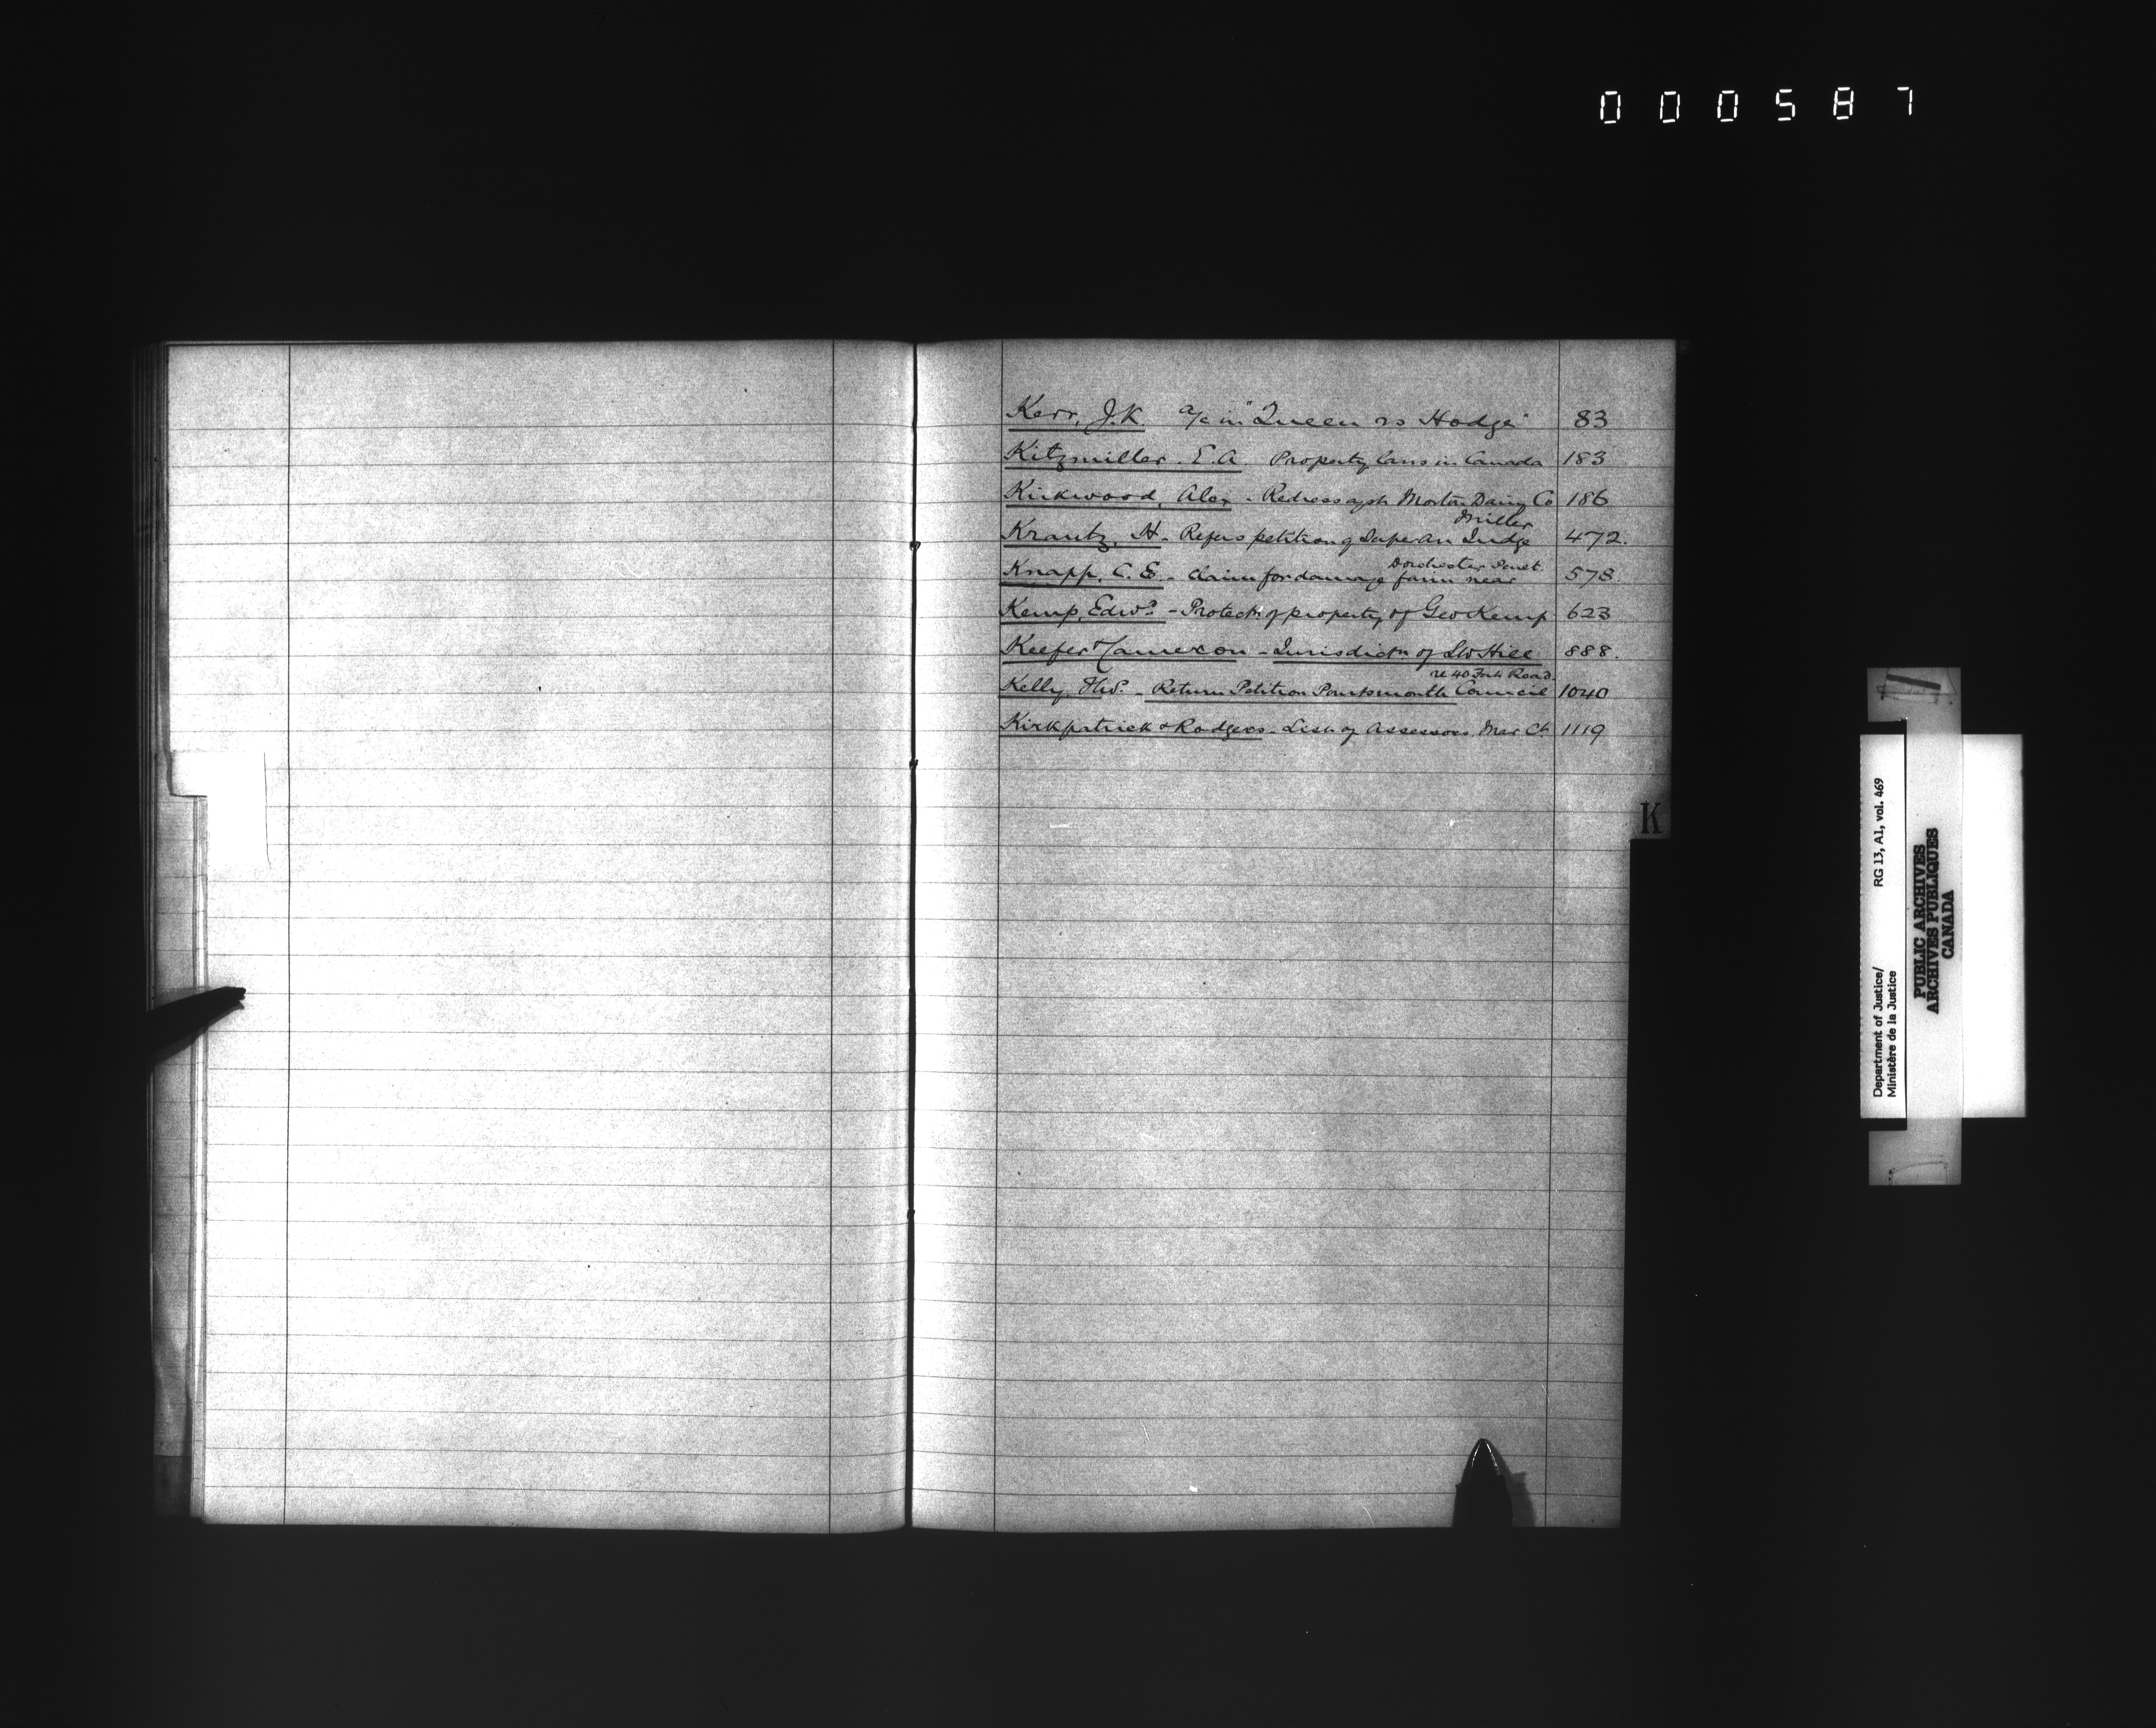 000587
Kerr, J.K. a/c in "Queen vs Hodge" 83
Kitzmiller. E.A. Property laws in Canada 183
Kirkwood, Alex - Redress agst Morton Dairy Co 186
Miller
Krantz, H. - Refers petition of Judge 472.
Dorchester Penit
Knapp, C.E. - Claim for damage farm near 578
Kemp, Edwd - Protectn of property of Geo Kemp 623
Keefer & Cameron - Jurisdictn of 888.
re 40 Foot Road
Kelly, - Return Petition Portsmouth Council 1040
Kirkpatrick & Rodgers - List of Assessors. Mar Ct 1119
K
Department of Justice/
Ministère de la Justice
RG 13, A1, vol. 469
PUBLIC ARCHIVES
ARCHIVES PUBLIQUES
CANADA